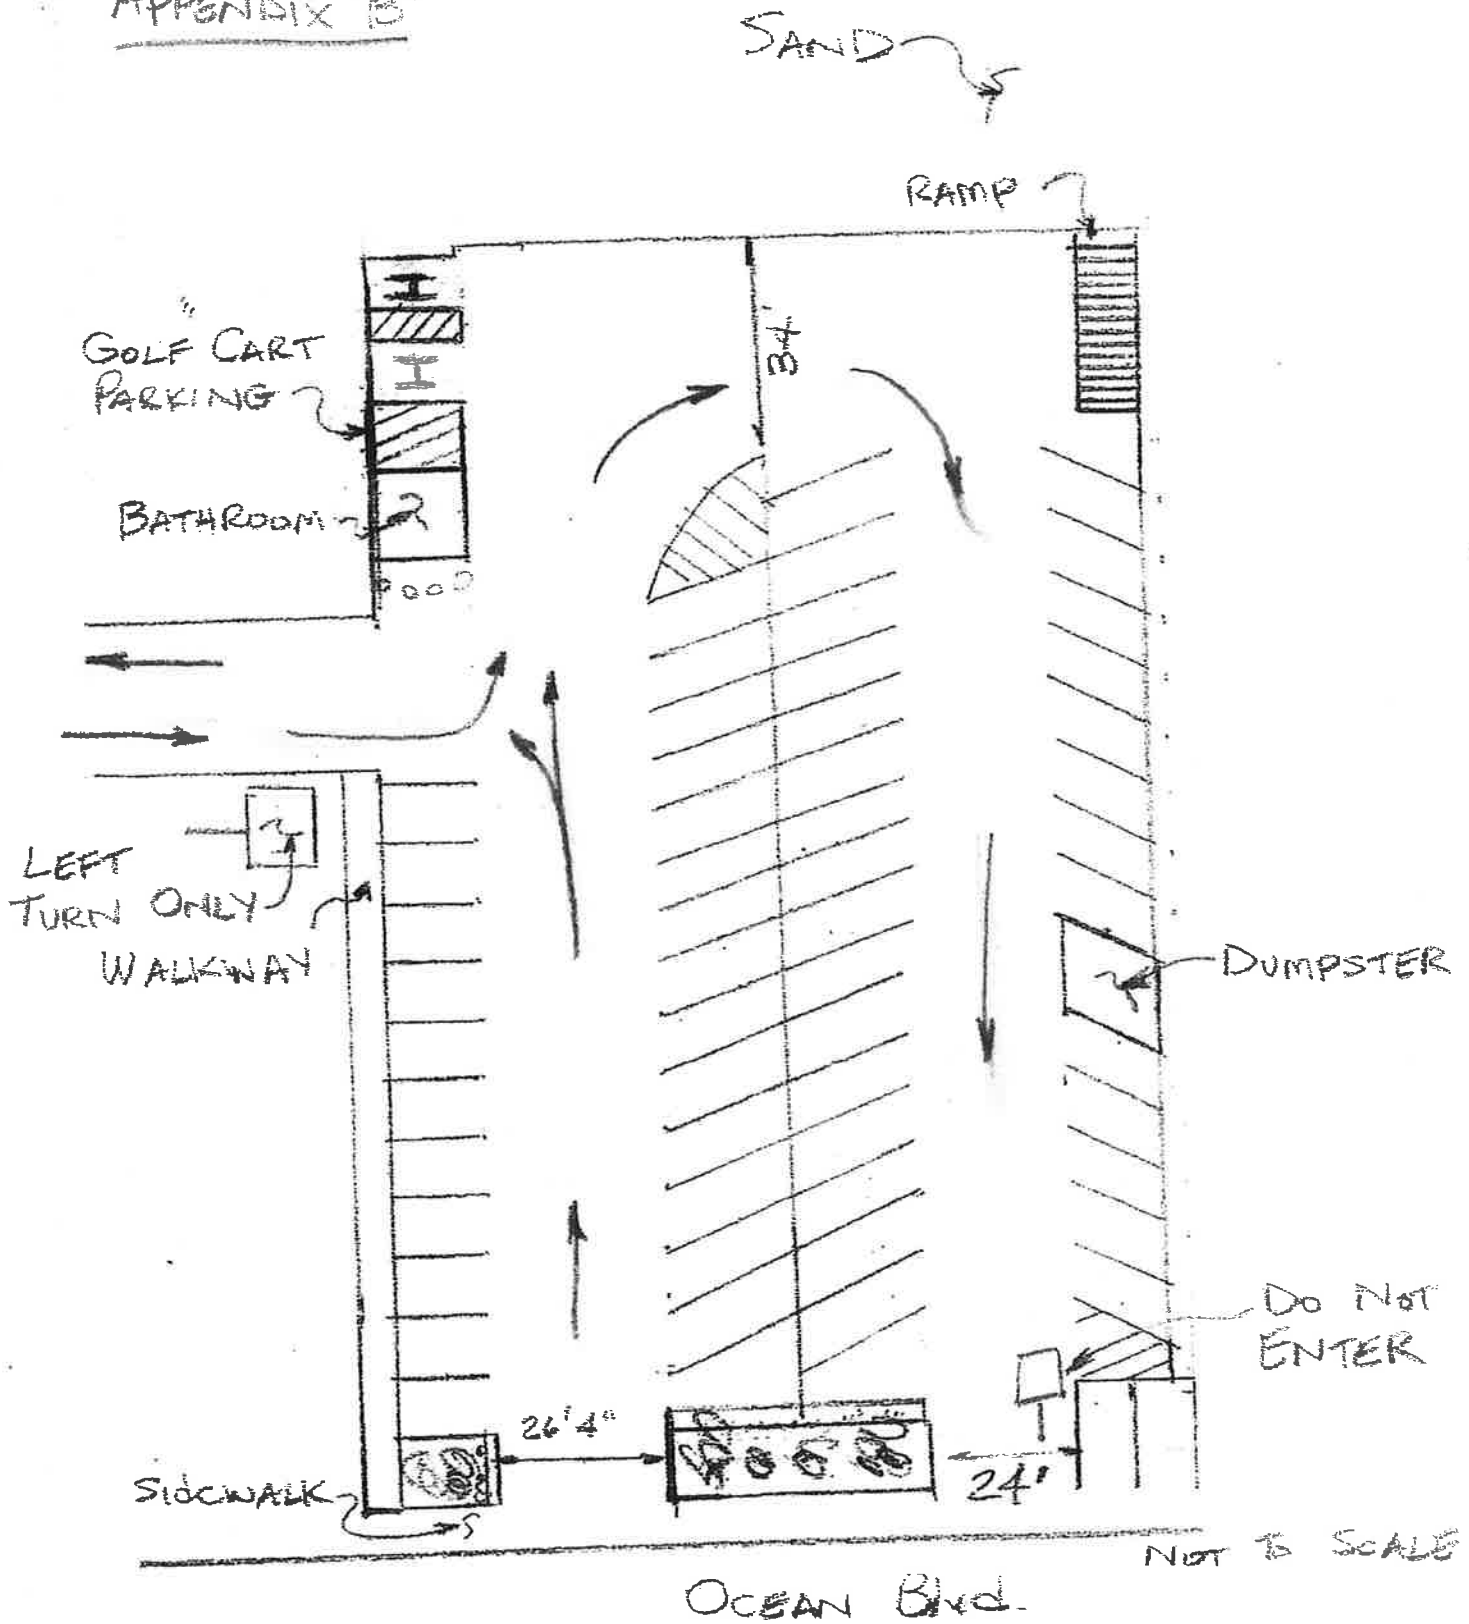 APPENDIX B
SAND
RAMP
34'
GOLF CART
PARKING
BATHROOM
LEFT
TURN ONLY
WALKWAY
DUMPSTER
DO NOT
ENTER
26'4"
24'
SIDEWALK
NOT TO SCALE
OCEAN Blvd.